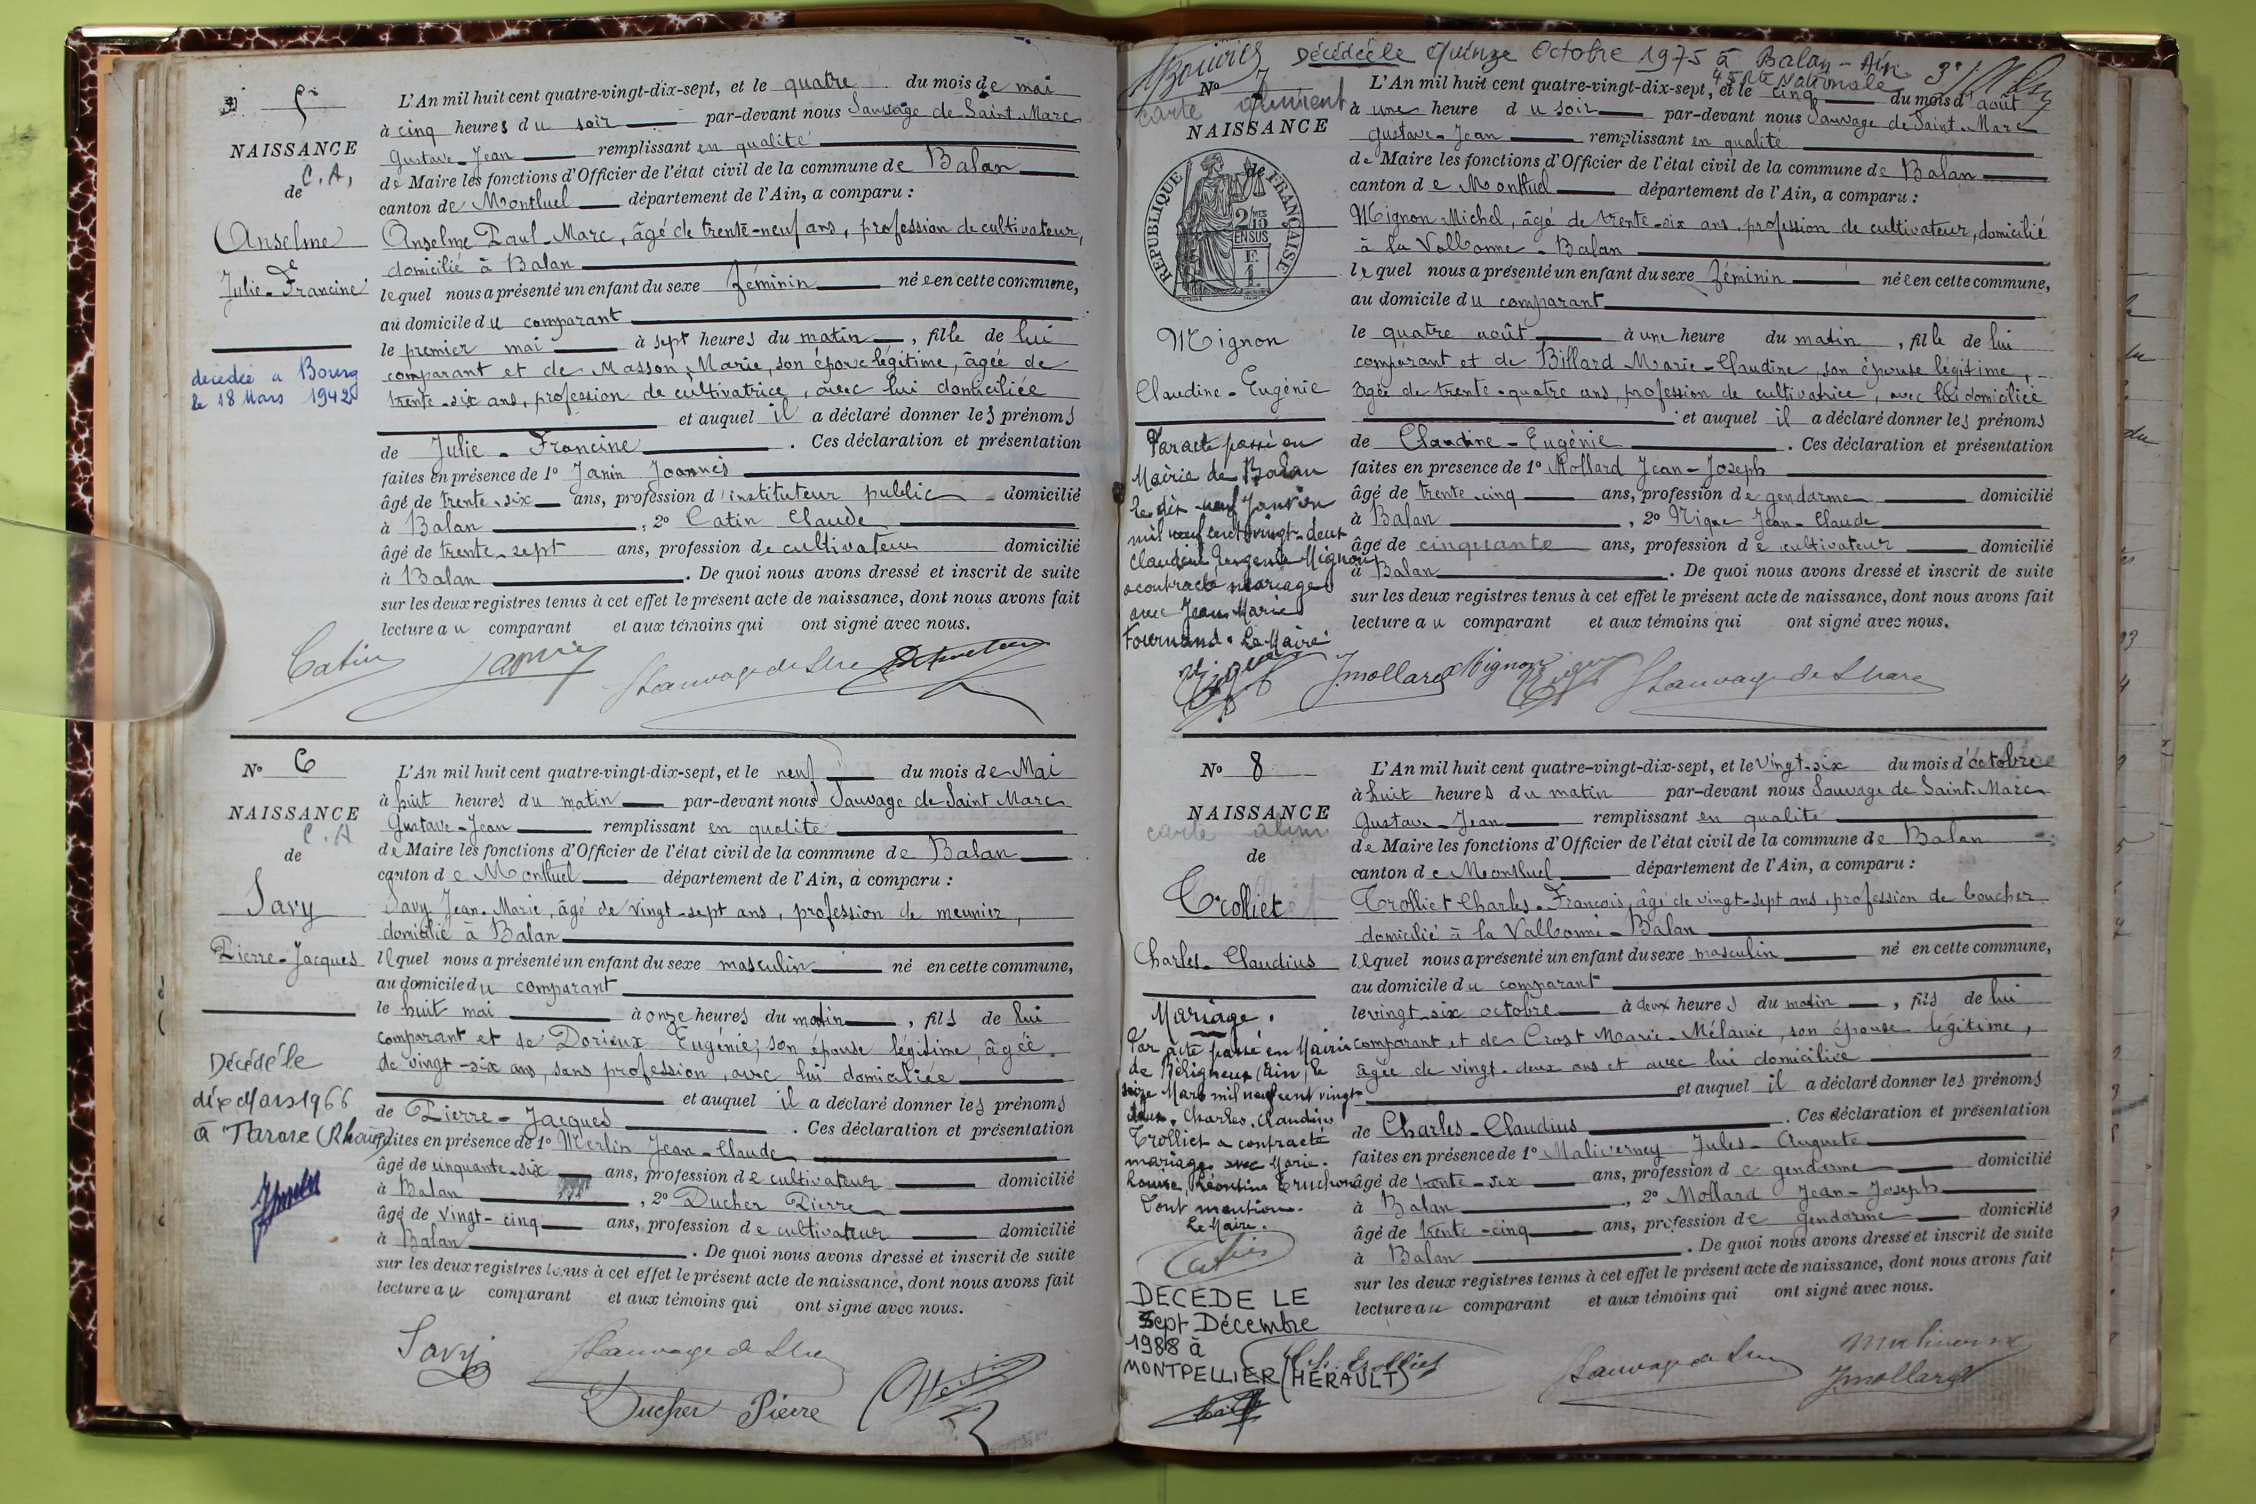 5
NAISSANCE
C.A,
de
Anselme
Julie-Francine
décédée à Bourg
le 18 Mars 1942
L'An mil huit cent quatre-vingt-dix-sept, et le quatre du mois de mai
à cinq heures du soir par-devant nous Sauvage de Saint Marc
Gustave-Jean remplissant en qualité
de Maire les fonctions d'Officier de l'état civil de la commune de Balan
canton de Montluel département de l'Ain, a comparu :
Anselme Paul-Marc, âgé de trente-neuf ans, profession de cultivateur,
domicilié à Balan
lequel nous a présenté un enfant du sexe féminin née en cette commune,
au domicile du comparant
le premier mai à sept heures du matin, fille de lui
comparant et de Masson Marie, son épouse légitime, âgée de
trente-six ans, profession de cultivatrice, avec lui domiciliée
et auquel il a déclaré donner les prénoms
de Julie-Francine. Ces déclaration et présentation
faites en présence de 1° Janin Joannès
âgé de trente-six ans, profession d'instituteur public domicilié
à Balan, 2° Catin Claude
âgé de trente-sept ans, profession de cultivateur domicilié
à Balan. De quoi nous avons dressé et inscrit de suite
sur les deux registres tenus à cet effet le présent acte de naissance, dont nous avons fait
lecture au comparant et aux témoins qui ont signé avec nous.
Catin Janin Sauvage de St Marc
No 6
NAISSANCE
C.A
de
Savy
Pierre-Jacques
Décédé le
dix Mars 1966
à Tarare (Rhône)
L'An mil huit cent quatre-vingt-dix-sept, et le neuf du mois de Mai
à huit heures du matin par-devant nous Sauvage de Saint Marc
Gustave-Jean remplissant en qualité
de Maire les fonctions d'Officier de l'état civil de la commune de Balan
canton de Montluel département de l'Ain, a comparu :
Savy Jean-Marie, âgé de vingt-sept ans, profession de meunier,
domicilié à Balan
lequel nous a présenté un enfant du sexe masculin né en cette commune,
au domicile du comparant
le huit mai à onze heures du matin, fils de lui
comparant et de Dorieux Eugénie, son épouse légitime, âgée
de vingt-six ans, sans profession, avec lui domiciliée
et auquel il a déclaré donner les prénoms
de Pierre-Jacques. Ces déclaration et présentation
faites en présence de 1° Merlin Jean-Claude
âgé de cinquante-six ans, profession de cultivateur domicilié
à Balan, 2° Ducher Pierre
âgé de vingt-cinq ans, profession de cultivateur domicilié
à Balan. De quoi nous avons dressé et inscrit de suite
sur les deux registres tenus à cet effet le présent acte de naissance, dont nous avons fait
lecture au comparant et aux témoins qui ont signé avec nous.
Savy Sauvage de St Marc
Ducher Pierre Merlin
Décédée le quinze Octobre 1975 à Balan-Ain
No 7
carte aliment
NAISSANCE
de
RÉPUBLIQUE FRANÇAISE
2/10
EN SUS
Mignon
Claudine-Eugénie
Par acte passé en
Mairie de Balan
le dix-neuf Janvier
mil neuf cent vingt-deux
Claudine Eugénie Mignon
a contracté mariage
avec Jean Marie
Fournand. Le Maire
L'An mil huit cent quatre-vingt-dix-sept, et le cinq du mois d'août
à une heure du soir par-devant nous Sauvage de Saint-Marc
Gustave-Jean remplissant en qualité
de Maire les fonctions d'Officier de l'état civil de la commune de Balan
canton de Montluel département de l'Ain, a comparu :
Mignon Michel, âgé de trente-six ans, profession de cultivateur, domicilié
à la Valbonne-Balan
lequel nous a présenté un enfant du sexe féminin née en cette commune,
au domicile du comparant
le quatre août à une heure du matin, fille de lui
comparant et de Billard Marie-Claudine, son épouse légitime,
âgée de trente-quatre ans, profession de cultivatrice, avec lui domiciliée
et auquel il a déclaré donner les prénoms
de Claudine-Eugénie. Ces déclaration et présentation
faites en présence de 1° Mollard Jean-Joseph
âgé de trente-cinq ans, profession de gendarme domicilié
à Balan, 2° Nique Jean-Claude
âgé de cinquante ans, profession de cultivateur domicilié
à Balan. De quoi nous avons dressé et inscrit de suite
sur les deux registres tenus à cet effet le présent acte de naissance, dont nous avons fait
lecture au comparant et aux témoins qui ont signé avec nous.
Jmollard Mignon Sauvage de St Marc
No 8
NAISSANCE
carte alim
de
Trolliet
Charles-Claudius
Mariage.
Par acte passé en Mairie
de Béligneux (Ain) le
seize Mars mil neuf cent vingt
deux, Charles, Claudius
Trolliet a contracté
mariage avec Marie-
Louise, Léontine Truchon
Dont mention.
Le Maire.
Catin
DECEDE LE
Sept Décembre
1988 à
MONTPELLIER (HÉRAULT)
L'An mil huit cent quatre-vingt-dix-sept, et le vingt-six du mois d'octobre
à huit heures du matin par-devant nous Sauvage de Saint-Marc
Gustave-Jean remplissant en qualité
de Maire les fonctions d'Officier de l'état civil de la commune de Balan
canton de Montluel département de l'Ain, a comparu :
Trolliet Charles-François, âgé de vingt-sept ans, profession de boucher
domicilié à la Valbonne-Balan
lequel nous a présenté un enfant du sexe masculin né en cette commune,
au domicile du comparant
le vingt-six octobre à deux heures du matin, fils de lui
comparant et de Crost Marie-Mélanie, son épouse légitime,
âgée de vingt-deux ans et avec lui domiciliée
et auquel il a déclaré donner les prénoms
de Charles-Claudius. Ces déclaration et présentation
faites en présence de 1° Maliverney Jules-Auguste
âgé de trente-six ans, profession de gendarme domicilié
à Balan, 2° Mollard Jean-Joseph
âgé de trente-cinq ans, profession de gendarme domicilié
à Balan. De quoi nous avons dressé et inscrit de suite
sur les deux registres tenus à cet effet le présent acte de naissance, dont nous avons fait
lecture au comparant et aux témoins qui ont signé avec nous.
Ch. Trolliet Sauvage de St Marc
Jmollard